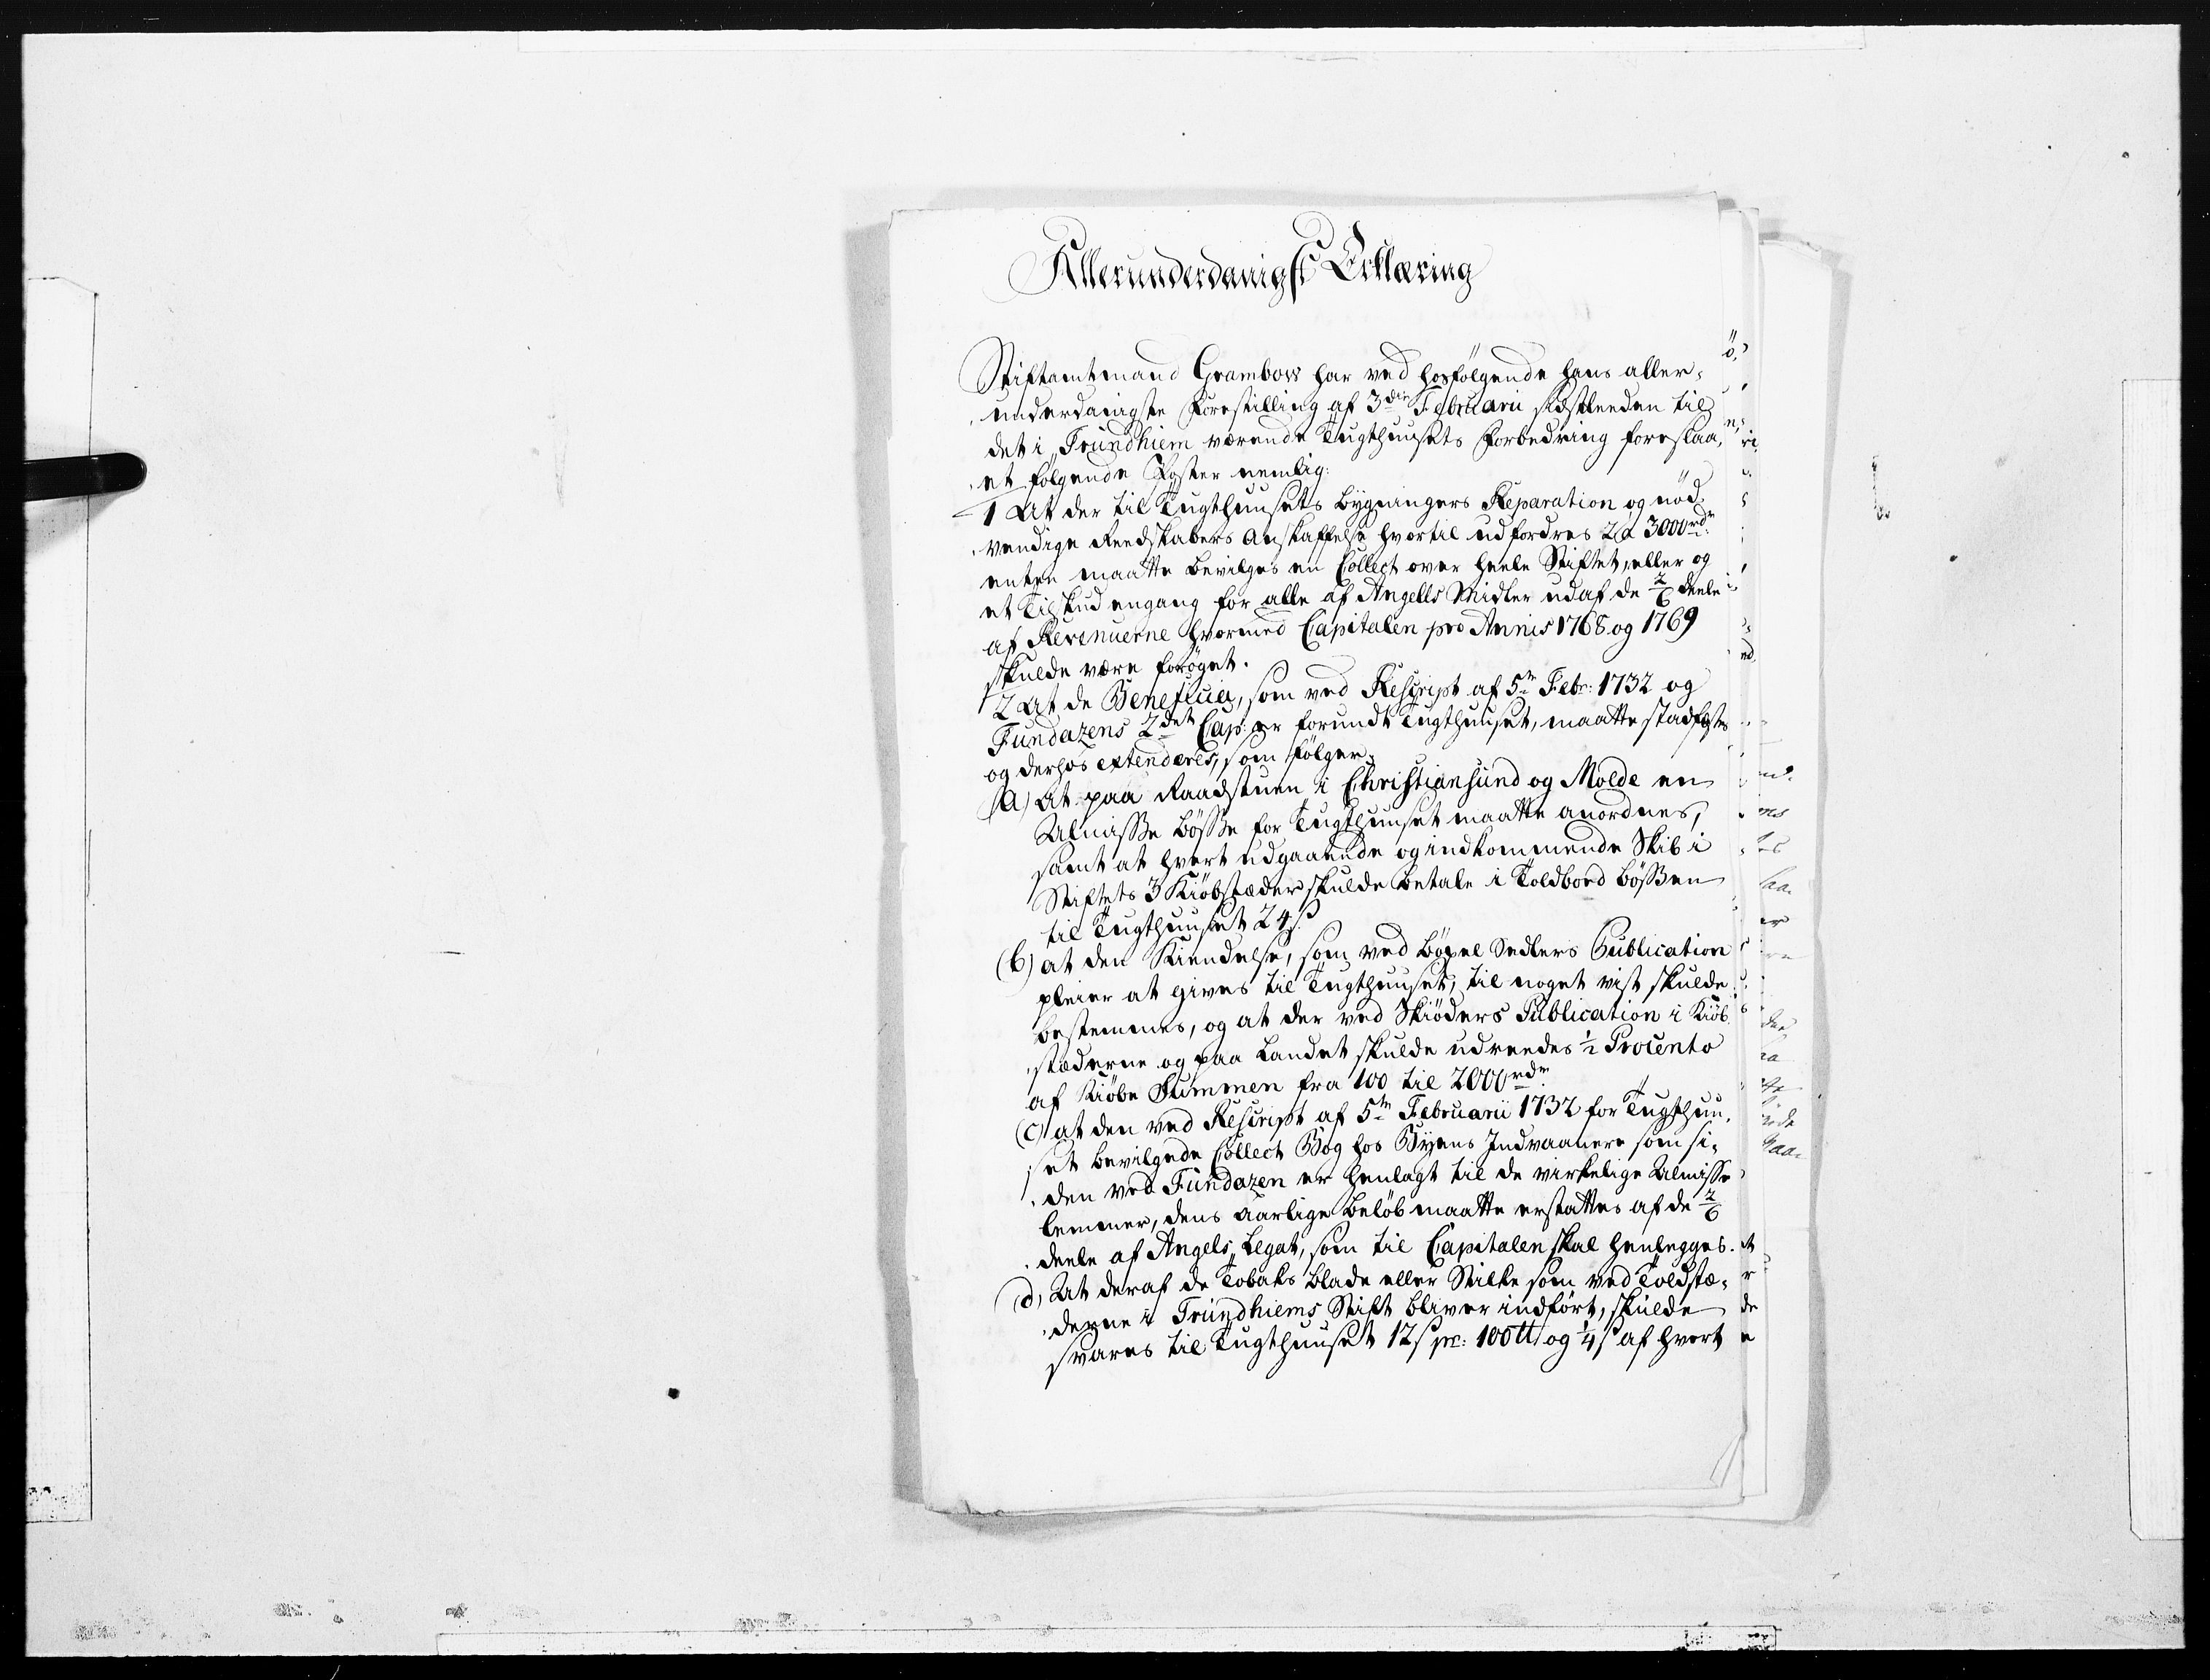 Allerunderdanigst Erklæring
Stiftamtmand Grambow har ved hosfölgende hans aller-
underdanigste Forestilling af 3die Februarii sidstleeden til
det i Trundhiem værende Tugthuusets Forbedring foreslaa-
et følgende Poster nemlig:
1 At der til Tugthuusets Bygningers Reparation og nöd-
vendige Reedskabers Anskaffelse hvortil udfordres 2 à 3000rdr
enten maatte bevilges en Collect over heele Stiftet, eller og
et Tilskud engang for alle af Angells Midler udaf de 2/6 deele
af Revenuerne hvormed Capitalen pro Annis 1768 og 1769
skulde være forøget.
2 At de Beneficia, som ved Rescript af 5te Febr: 1732 og
Fundazens 2det Cap: er forundt Tugthuuset, maatte stadfæstes
og derhos extenderes, som fölger:
(a) At paa Raadstuen i Christiansund og Molde en
Almisse Bösse for Tugthuuset maatte anordnes,
samt at hvert udgaaende og indkommende Skib i
Stiftets 3 Kiøbstæder skulde betale i Toldbod Bössen
til Tugthuuset 24 s.
(b) at den Kiendelse, som ved Bøxel Sedlers Publication
pleier at gives til Tugthuuset, til noget vist skulde
bestemmes, og at der ved Skiöders Publication i Kiöb-
stæderne og paa Landet skulde udreedes 1/2 Procento
af Kiöbe Summen fra 100 til 2000rdr
(c) at den ved Rescript af 5te Februarii 1732 for Tugthuu-
set bevilgede Collect Bog hos Byens Indvaanere som si-
den ved Fundazen er henlagt til de virkelige Almisse
lemmer, dens Aarlige Beløb maatte erstattes af de 2/6
deele af Angels Legat, som til Capitalen skal henlegges.
(d) At deraf de Tobaks Blade eller Stilke som ved Toldstæ-
derne i Trundhiems Stift bliver indfört, skulde
svares til Tugthuuset 12 s pr: 100 ℔ og 1/4 s af hvert